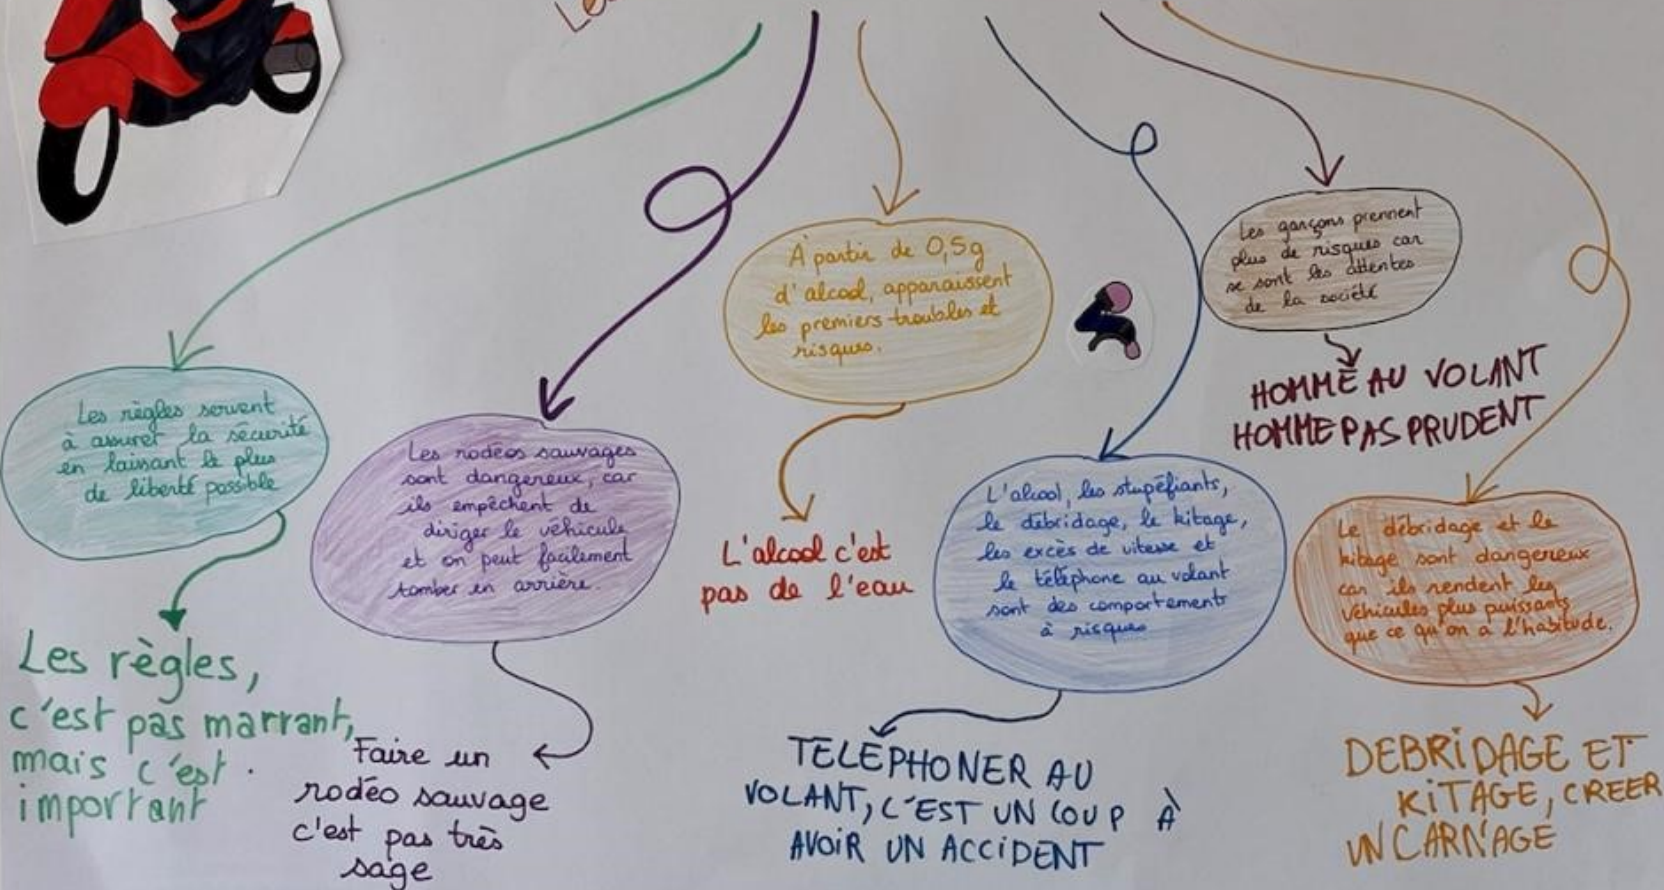 Les règles servent
à assuret la sécurité
en laissant le plus
de liberté possible
Les règles,
c'est pas marrant,
mais c'est
important
Les rodéos sauvages
sont dangereux, car
ils empêchent de
diriger le véhicule
et on peut facilement
tomber en arrière.
Faire un
rodéo sauvage
c'est pas très
sage
A partir de 0,5g
d'alcool, apparaissent
les premiers troubles et
risques.
L'alcool c'est
pas de l'eau
L'alcool, les stupéfiants,
le débridage, le kitage,
les excès de vitesse et
le téléphone au volant
sont des comportements
à risques
TELEPHONER AU
VOLANT, C'EST UN COUP À
AVOIR UN ACCIDENT
Les garçons prennent
plus de risques car
se sont les attentes
de la société
HOMME AU VOLANT
HOMME PAS PRUDENT
Le débridage et le
kitage sont dangereux
car ils rendent les
véhicules plus puissants
que ce qu'on a l'habitude.
DEBRIDAGE ET
KITAGE, CREER
UN CARNAGE